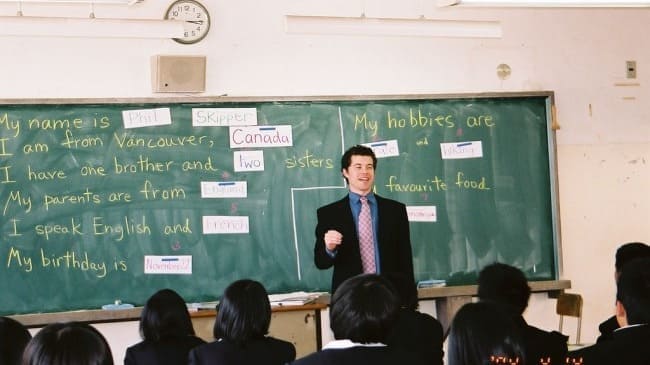 My name is Phil Skipper
I am from Vancouver, Canada
I have one brother and two sisters
My parents are from England
I speak English and French
My birthday is November 12
My hobbies are
and hiking
favourite food